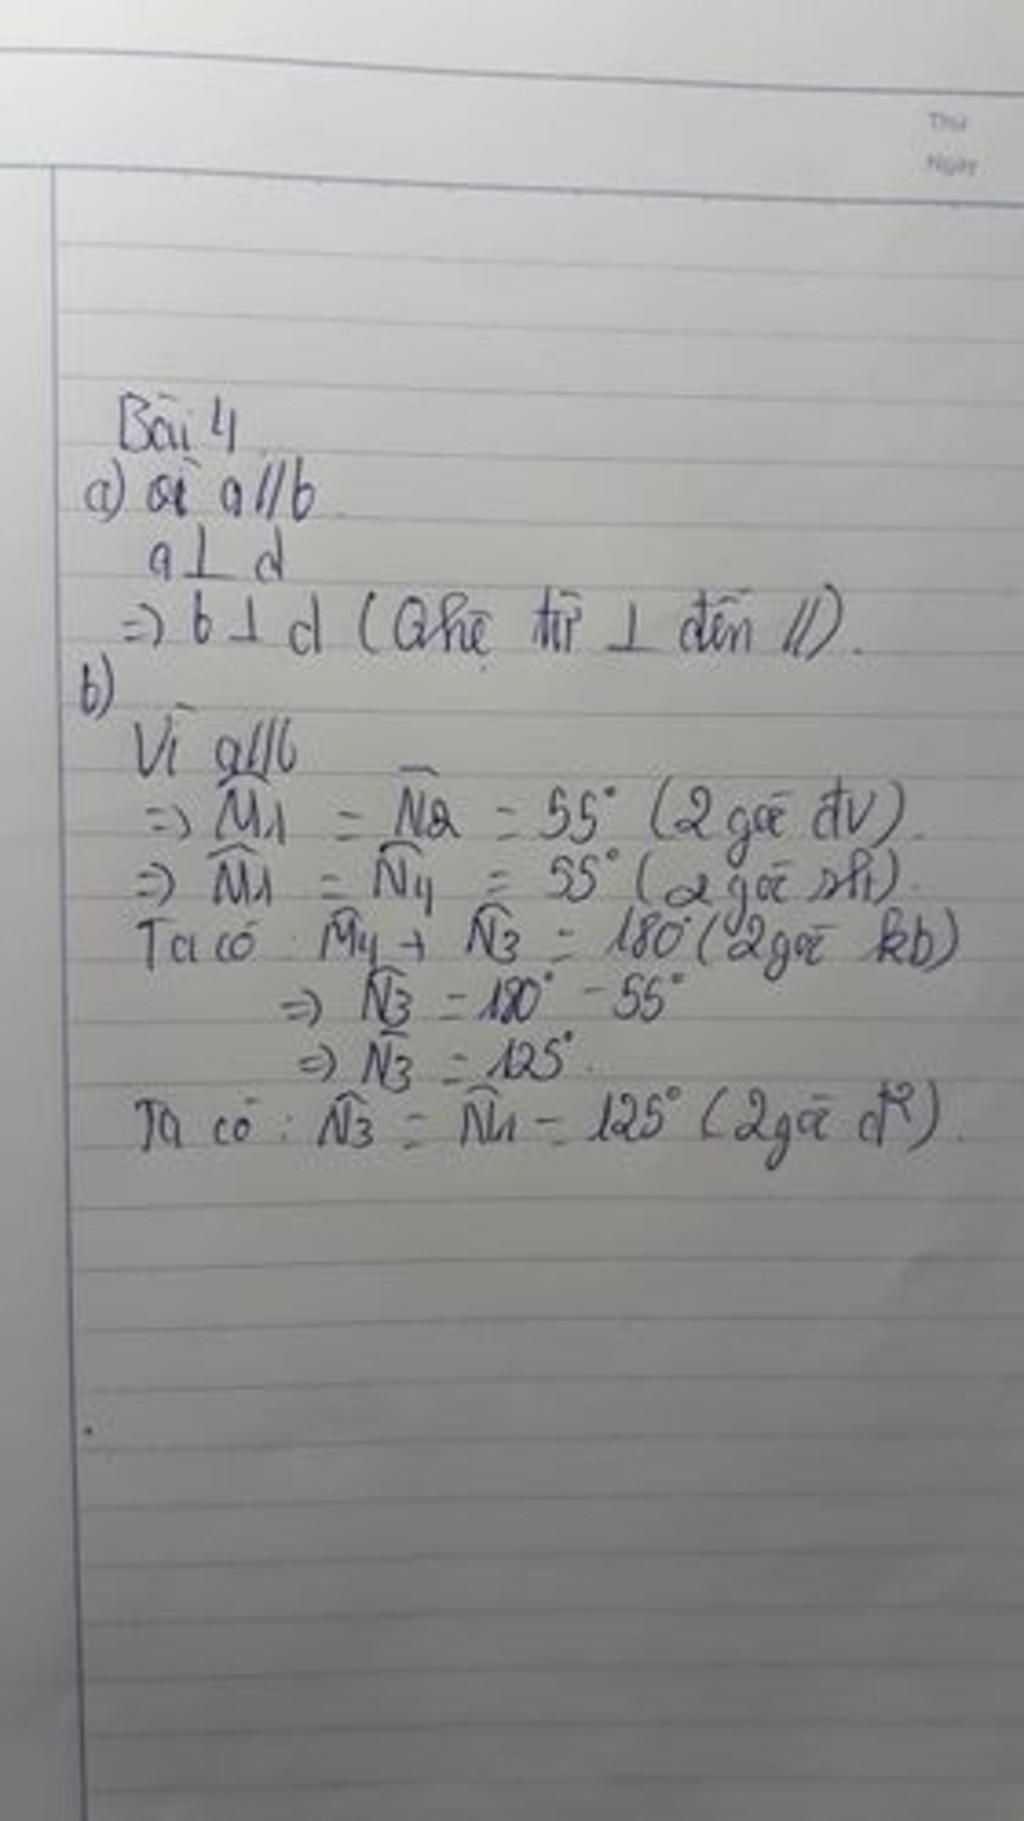 Thứ
Ngày
Bài 4
a) vì a//b
a⊥ d
=> b⊥ d (Qhệ từ ⊥ đến //).
b)
Vì a//b
=> M̂1 = N̂2 = 55° (2 góc đv).
=> M̂1 = N̂4 = 55° (2 góc slt).
Ta có : M̂4 + N̂3 = 180° (2 góc kb)
=> N̂3 = 180° - 55°
=> N̂3 = 125°.
Ta có : N̂3 = N̂1 = 125° (2 góc đ²).